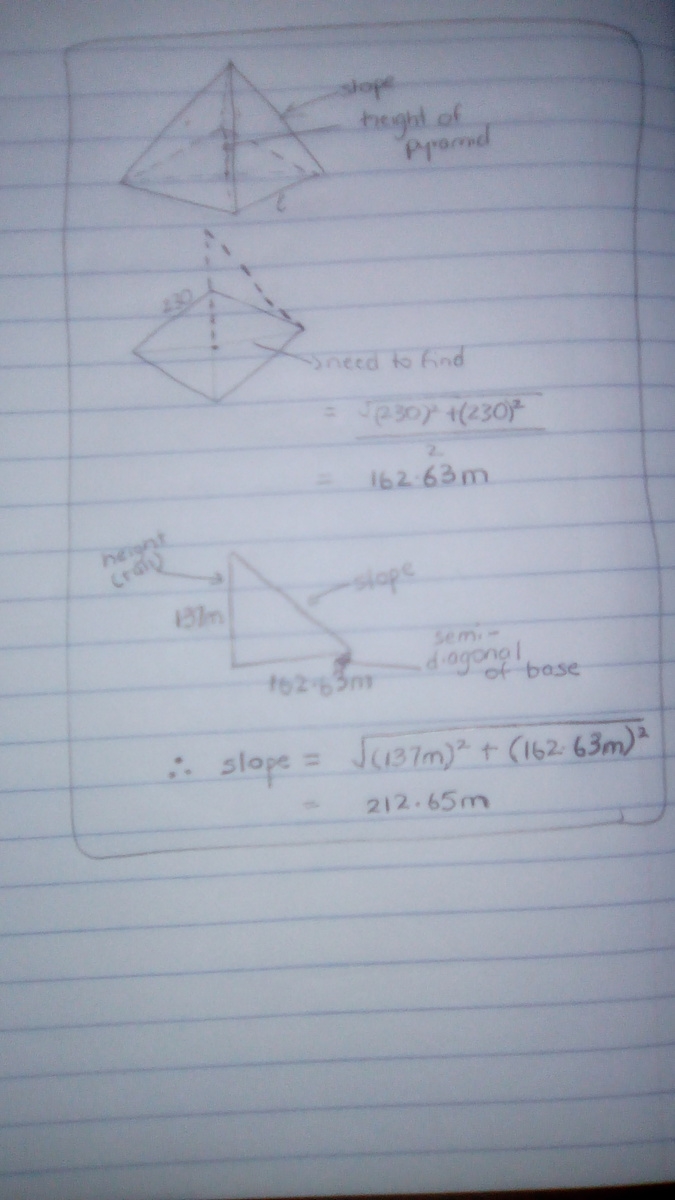 slope
height of
pyramid
l
230
need to find
= √(230)² + (230)²
2
= 162.63m
height
slope
137m
semi-
diagonal
of base
162.63m
∴ slope = √(137m)² + (162.63m)²
= 212.65m